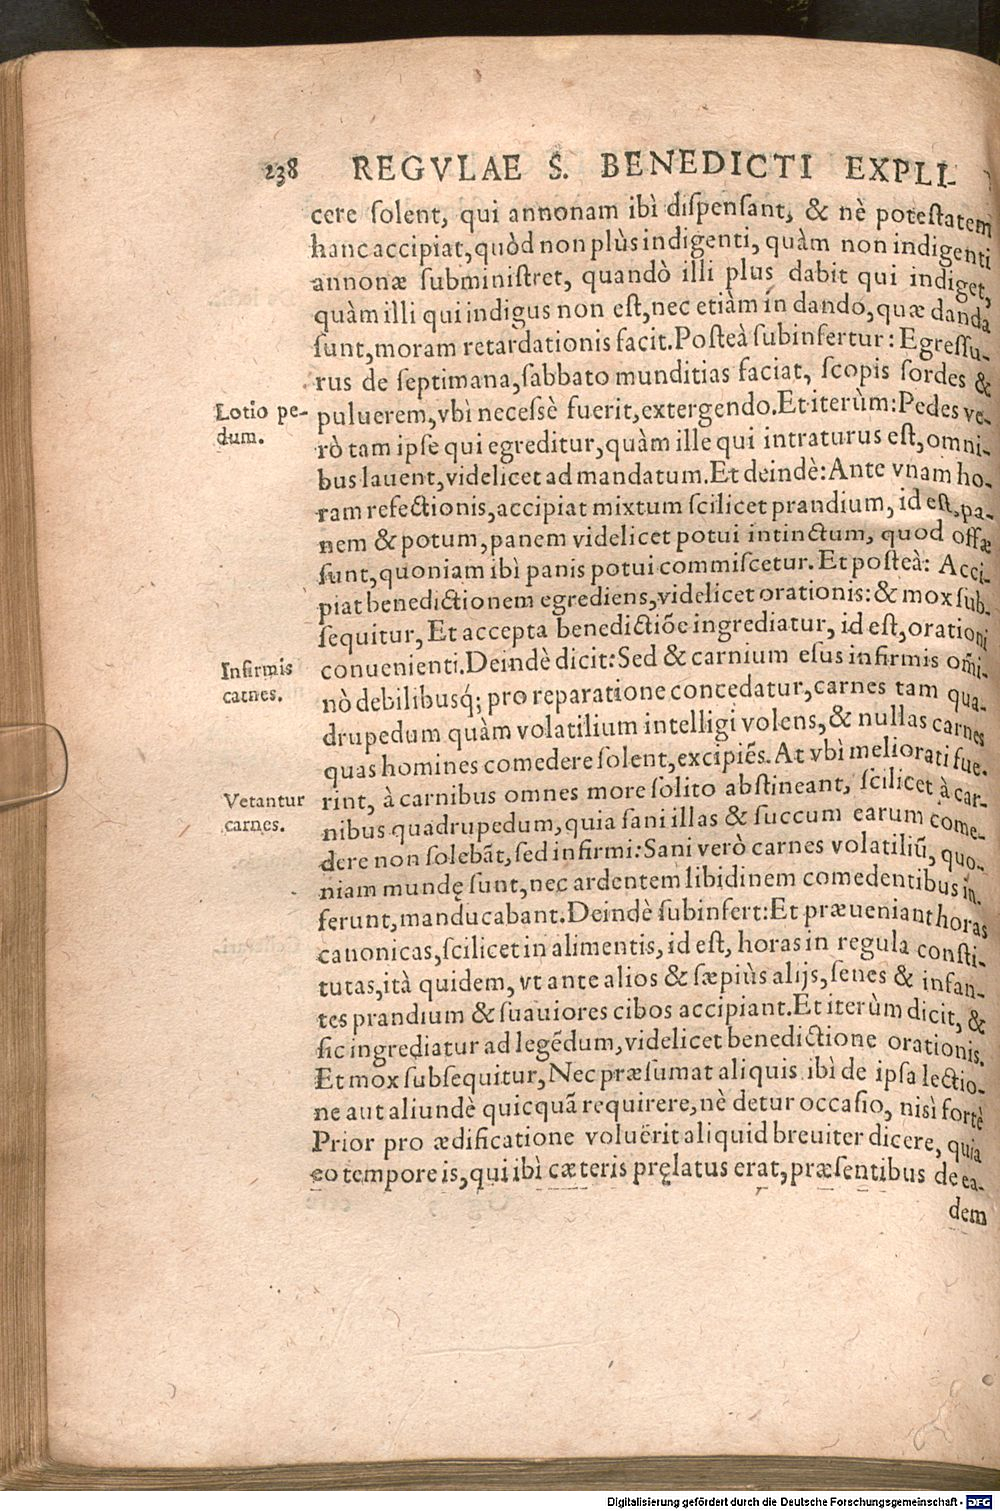 238 REGVLAE S. BENEDICTI EXPLI-
cere solent, qui annonam ibì dispensant, & nè potestatem
hanc accipiat, quòd non plùs indigenti, quàm non indigenti
annonæ subministret, quandò illi plus dabit qui indiget,
quàm illi qui indigus non est, nec etiàm in dando, quæ danda
sunt, moram retardationis facit. Posteà subinfertur: Egressu-
rus de septimana, sabbato munditias faciat, scopis sordes &
Lotio pe-
dum.
puluerem, vbì necessè fuerit, extergendo. Et iterùm: Pedes ve-
rò tam ipse qui egreditur, quàm ille qui intraturus est, omni-
bus lauent, videlicet ad mandatum. Et deindè: Ante vnam ho-
ram refectionis, accipiat mixtum scilicet prandium, id est, pa-
nem & potum, panem videlicet potui intinctum, quod offæ
sunt, quoniam ibì panis potui commiscetur. Et posteà: Acci-
piat benedictionem egrediens, videlicet orationis: & mox sub-
sequitur, Et accepta benedictiõe ingrediatur, id est, orationi
Infirmis
carnes.
conuenienti. Deindè dicit: Sed & carnium esus infirmis om̃i-
nò debilibusq́; pro reparatione concedatur, carnes tam qua-
drupedum quàm volatilium intelligi volens, & nullas carnes
quas homines comedere solent, excipiẽs. At vbì meliorati fue-
Vetantur
carnes.
rint, à carnibus omnes more solito abstineant, scilicet à car-
nibus quadrupedum, quia sani illas & succum earum come-
dere non solebãt, sed infirmi: Sani verò carnes volatiliũ, quo-
niam mundę sunt, nec ardentem libidinem comedentibus in-
ferunt, manducabant. Deindè subinfert: Et præueniant horas
canonicas, scilicet in alimentis, id est, horas in regula consti-
tutas, ità quidem, vt ante alios & sæpiùs alijs, senes & infan-
tes prandium & suauiores cibos accipiant. Et iterùm dicit, &
sic ingrediatur ad legẽdum, videlicet benedictione orationis.
Et mox subsequitur, Nec præsumat aliquis ibì de ipsa lectio-
ne aut aliundè quicquã requirere, nè detur occasio, nisì fortè
Prior pro ædificatione voluerit aliquid breuiter dicere, quia
eo tempore is, qui ibì cæteris pręlatus erat, præsentibus de ea-
dem
Digitalisierung gefördert durch die Deutsche Forschungsgemeinschaft - DFG